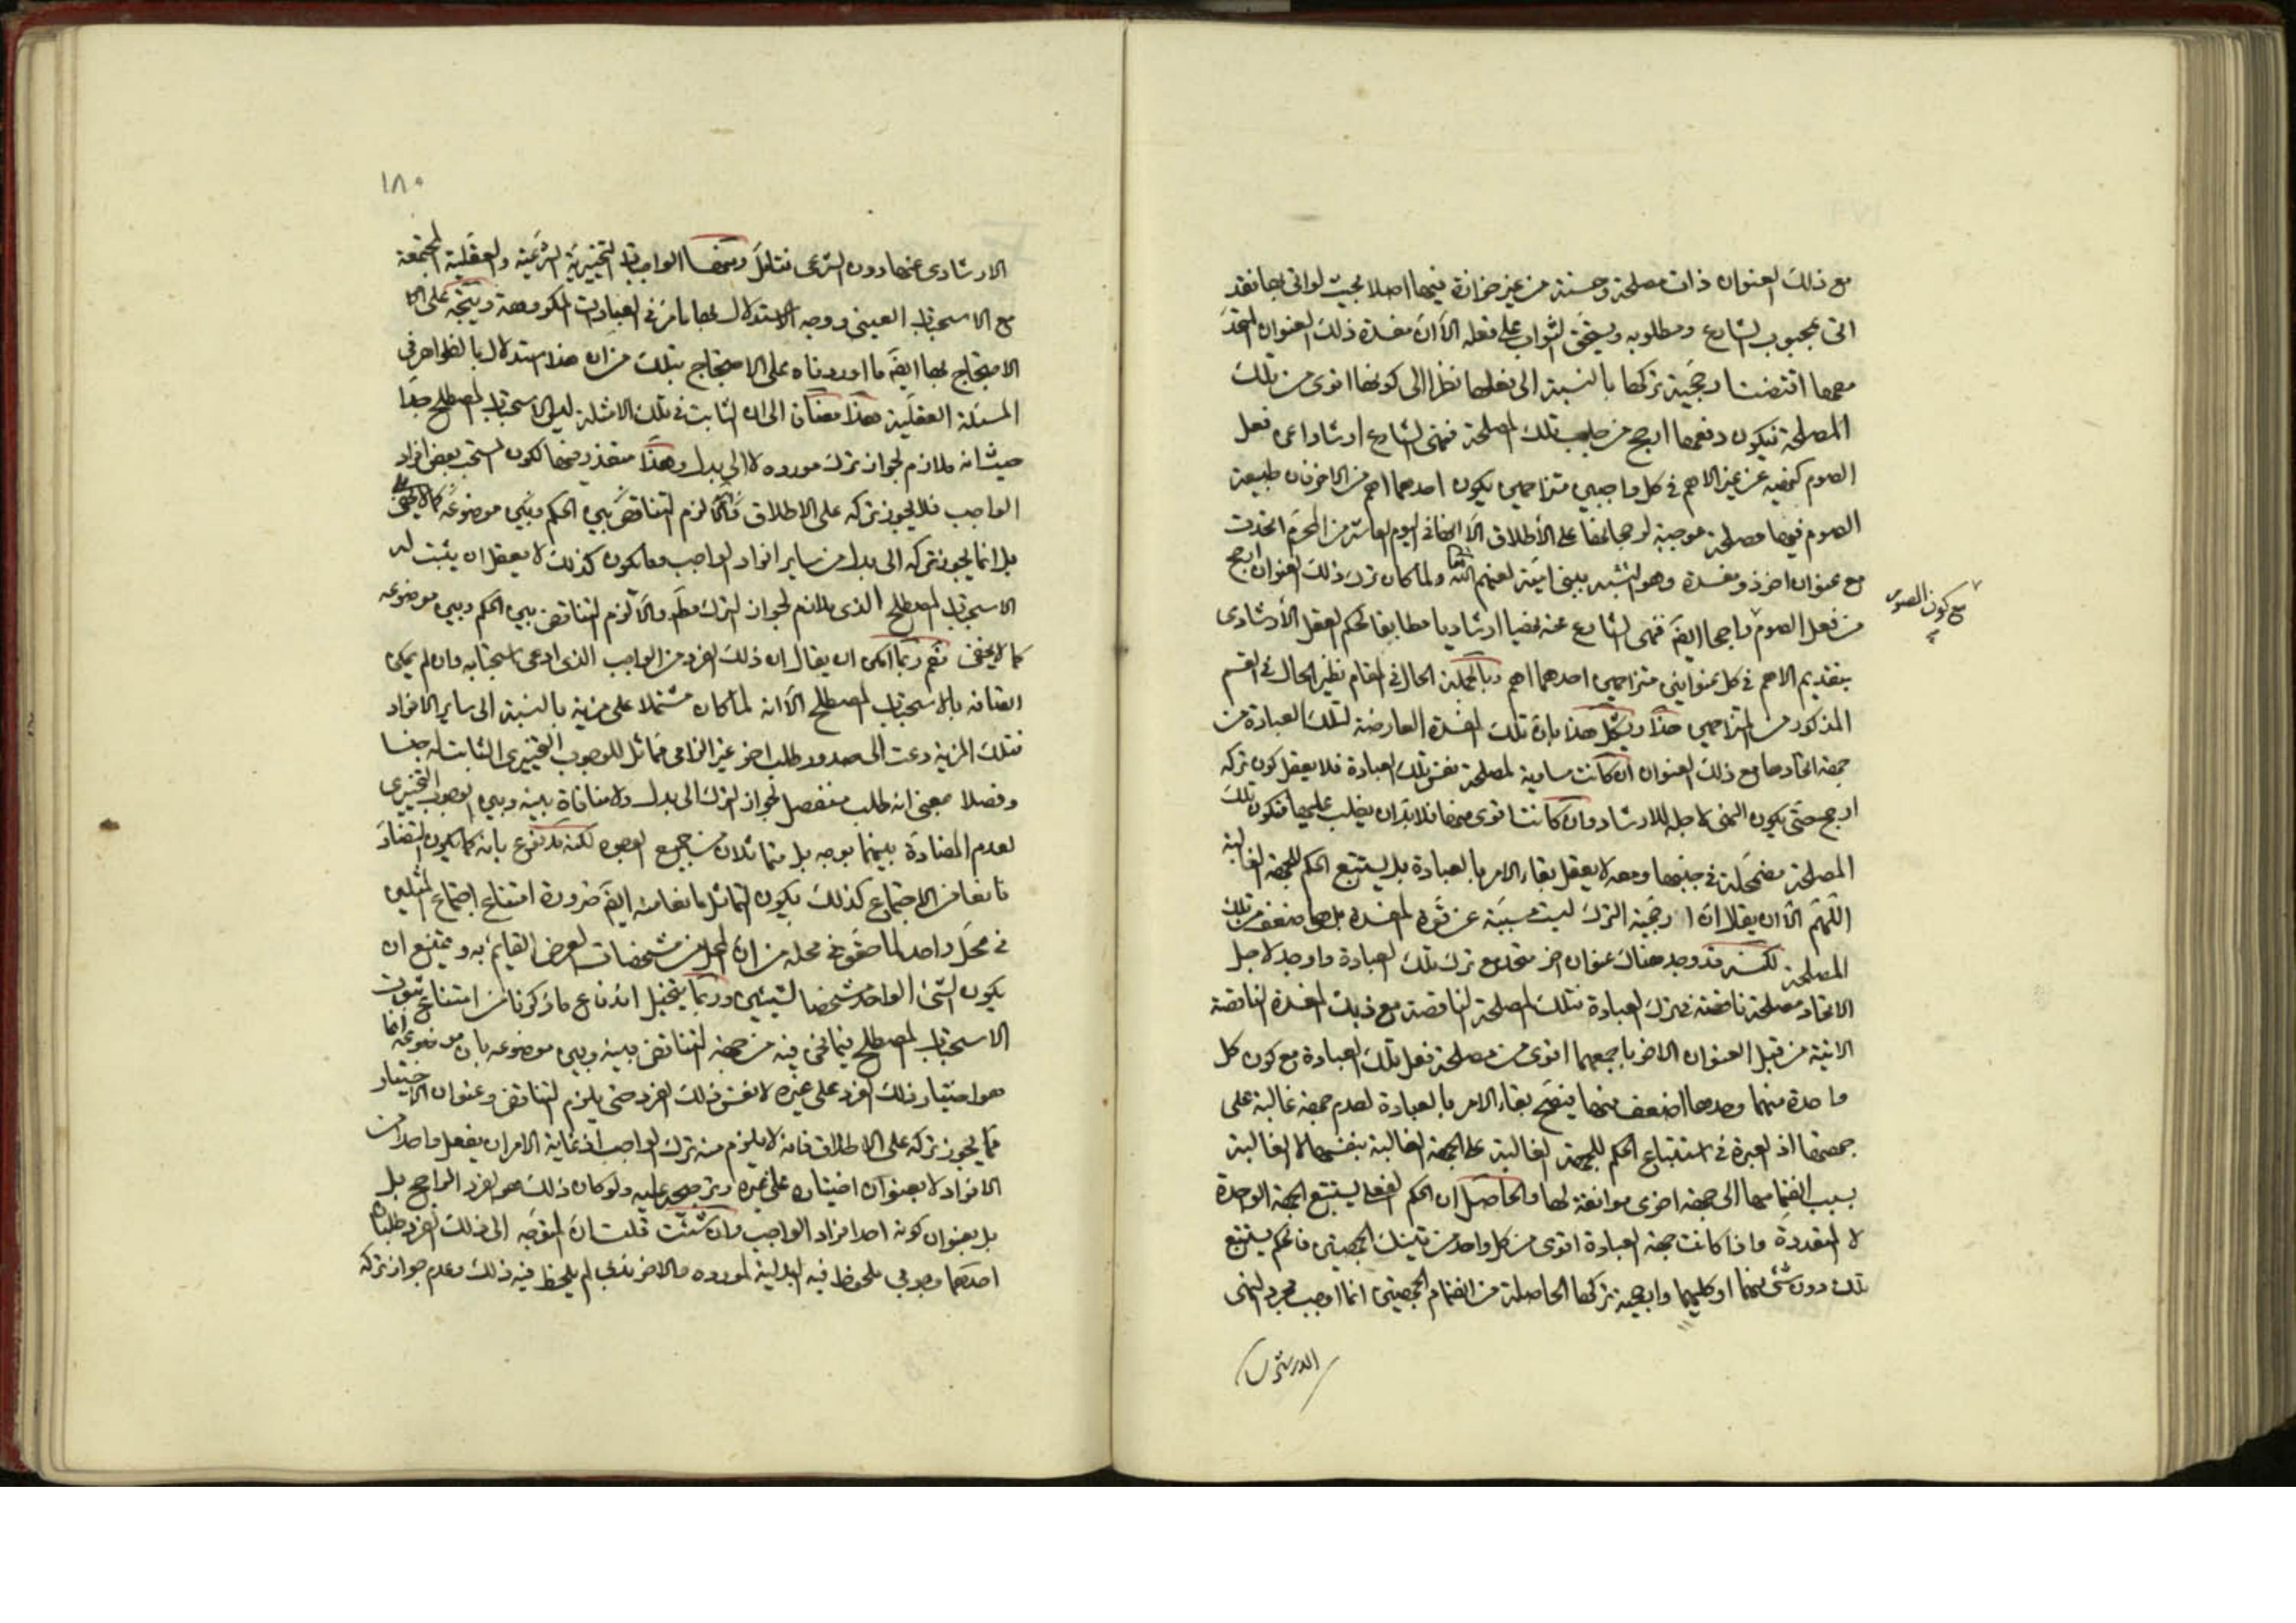 مع ذلك العنوان ذات مصلحة وحسنة من غير حزازة فيها اصلا بحيث لو اتى بها فقد
اتى بمحبوب الشارع ومطلوبه ويستحق الثواب على فعله الا ان مفسدة ذلك العنوان المتحد
معها اقتضت ارجحية تركها بالنسبة الى فعلها نظرا الى كونها اقوى من تلك
المصلحة فيكون دفعها ارجح من جلب تلك المصلحة فنهى الشارع ارشادا عن فعل
الصوم كنهيه عن غير الاهم في كل واجبين متزاحمين يكون احدهما اهم من الاخر فان طبيعة
الصوم فيها مصلحة موجبة لرجحانها على الأطلاق الا انها في اليوم العاشر من المحرم اتحدت
مع عنوان اخر ذو مفسدة وهو التشبه ببني امية لعنهم الله ولما كان ترك ذلك العنوان ارجح
من فعل الصوم راجحا ايضَ فنهى الشارع عنه نهيا ارشاديا مطابقا لحكم العقل الأرشادى
مع كون الصوم
بتقديم الاهم في كل عنوانين متزاحمين احدهما اهم وبالجملة الحال في المقام نظير الحال في القسم
المذكور من المتزاحمين هذا ويشكل هذا بان تلك المفسدة العارضة لتلك العبادة من
جهة اتحادها مع ذلك العنوان ان كانت مساوية لمصلحة نفس تلك العبادة فلا يعقل كون تركه
ارجح حتى يكون النهى لاجله للارشاد وان كانت اقوى منها فلابد ان يغلب عليها فتكون تلك
المصلحة مضمحلة في جنبها ومعه لا يعقل بقاء الامر بالعبادة بل يستتبع الحكم للجهة الغالبة
اللهم الا ان يقال ان ارجحية الترك ليست مسببة عن قوة المفسدة بل هى اضعف من تلك
المصلحة لكنه قد وجد هناك عنوان اخر متحد مع ترك تلك العبادة واوجد لاجل
الاتحاد مصلحة ناقصة في ترك العبادة فتلك المصلحة الناقصة مع ذيك المفسدة الناقصة
الاتية من قبل العنوان الاخر باجمعهما اقوى من مصلحة فعل تلك العبادة مع كون كل
واحدة منهما وحدها اضعف منها فيتضح بقاء الامر بالعبادة لعدم جهة غالبة على
جهتها اذ العبرة في استتباع الحكم للجهة الغالبة على الجهة الغالبة بنفسها لا الغالبة
بسبب انضمامها الى جهة اخرى موافقة لها والحاصل ان الحكم الفعلي يستتبع الجهة الواحدة
لا المتعددة واذا كانت جهة العبادة اقوى من كل واحد من تينك الجهتين فالحكم يستتبع
تلك دون شئ منهما او كليهما وارجحية تركها الحاصلة من انضمام الجهتين انما اوجب مجرد النهى
١٨٠
الارشادى عنها دون الشرعى فتامل ومنها الواجبات التخييرية الشرعية والعقلية المجتمعة
مع الاستحباب العينى ووجه الاستدلال بها ما مر في العبادات المكروهة ويتجه على
الاحتجاج بها ايضَ ما اوردناه على الاحتجاج بتلك من ان هذا استدلال بالظواهر في
المسئلة العقلية هذا مضافا الى ان الثابت في تلك الامثلة ليس الاستحباب المصطلح جدا
حيث انه ملازم لجواز ترك مورده لا الى بدل وهذا متعذر فيها لكون المستحب بعض افراد
الواجب فلا يجوز تركه على الاطلاق والا لزم التناقض بين الحكم وبين موضوعه كما لا يخفى
بل انما يجوز تركه الى بدل من ساير افراد الواجب وما يكون كذلك لا يعقل ان يثبت له
الاستحباب المصطلح الذى يلازم لجواز الترك مطَ والا لزم التناقض بين الحكم وبين موضوعه
كما لا يخفى نعم ربما امكن ان يقال ان ذلك الفرد من الواجب الذى ادعى استحبابه وان لم يمكن
اتصافه بالاستحباب المصطلح الا انه لما كان مشتملا على مزية بالنسبة الى ساير الافراد
فتلك المزية دعت الى صدور طلب اخر غير الزامى مماثل للوجوب التخييرى الثابت له جنسا
وفصلا بمعنى انه طلب منفصل لجواز الترك الى بدل ولا منافاة بينه وبين الوجوب التخييرى
لعدم المضادة بينهما بوجه بل متماثلان من جميع الوجوه لكنه مدفوع بانه كما يكون التضاد
مانعا من الاجتماع كذلك يكون التماثل مانعا منه ايضَ ضرورة امتناع اجتماع المثلين
في محل واحد لما حقق في محله من ان المحل من مشخصات العرض القائم به ويمتنع ان
يكون الشئ الواحد مشخصا لشيئين وربما يتخيل اندفاع ما ذكرنا من امتناع ثبوت
الاستحباب المصطلح فيما نحن فيه من جهة التناقض بينه وبين موضوعه بان موضوعه انما
هو اختيار ذلك الفرد على غيره لا نفس ذلك الفرد حتى يلزم التناقض وعنوان الاختيار
مما يجوز تركه على الاطلاق فانه لا يلزم منه ترك الواجب اذ غاية الامر ان يفعل واحدا من
الافراد لا بعنوان اختياره على غيره وترجيحه عليه ولو كان ذلك هو الفرد الراجح بل
بل بعنوان كونه احد افراد الواجب وان شئت قلت ان المتوجه الى ذلك الفرد طلبان
احدهما وجوبى ملحوظ فيه البدلية لمورده والاخر ندبى لم يلحظ فيه ذلك وعدم جواز تركه